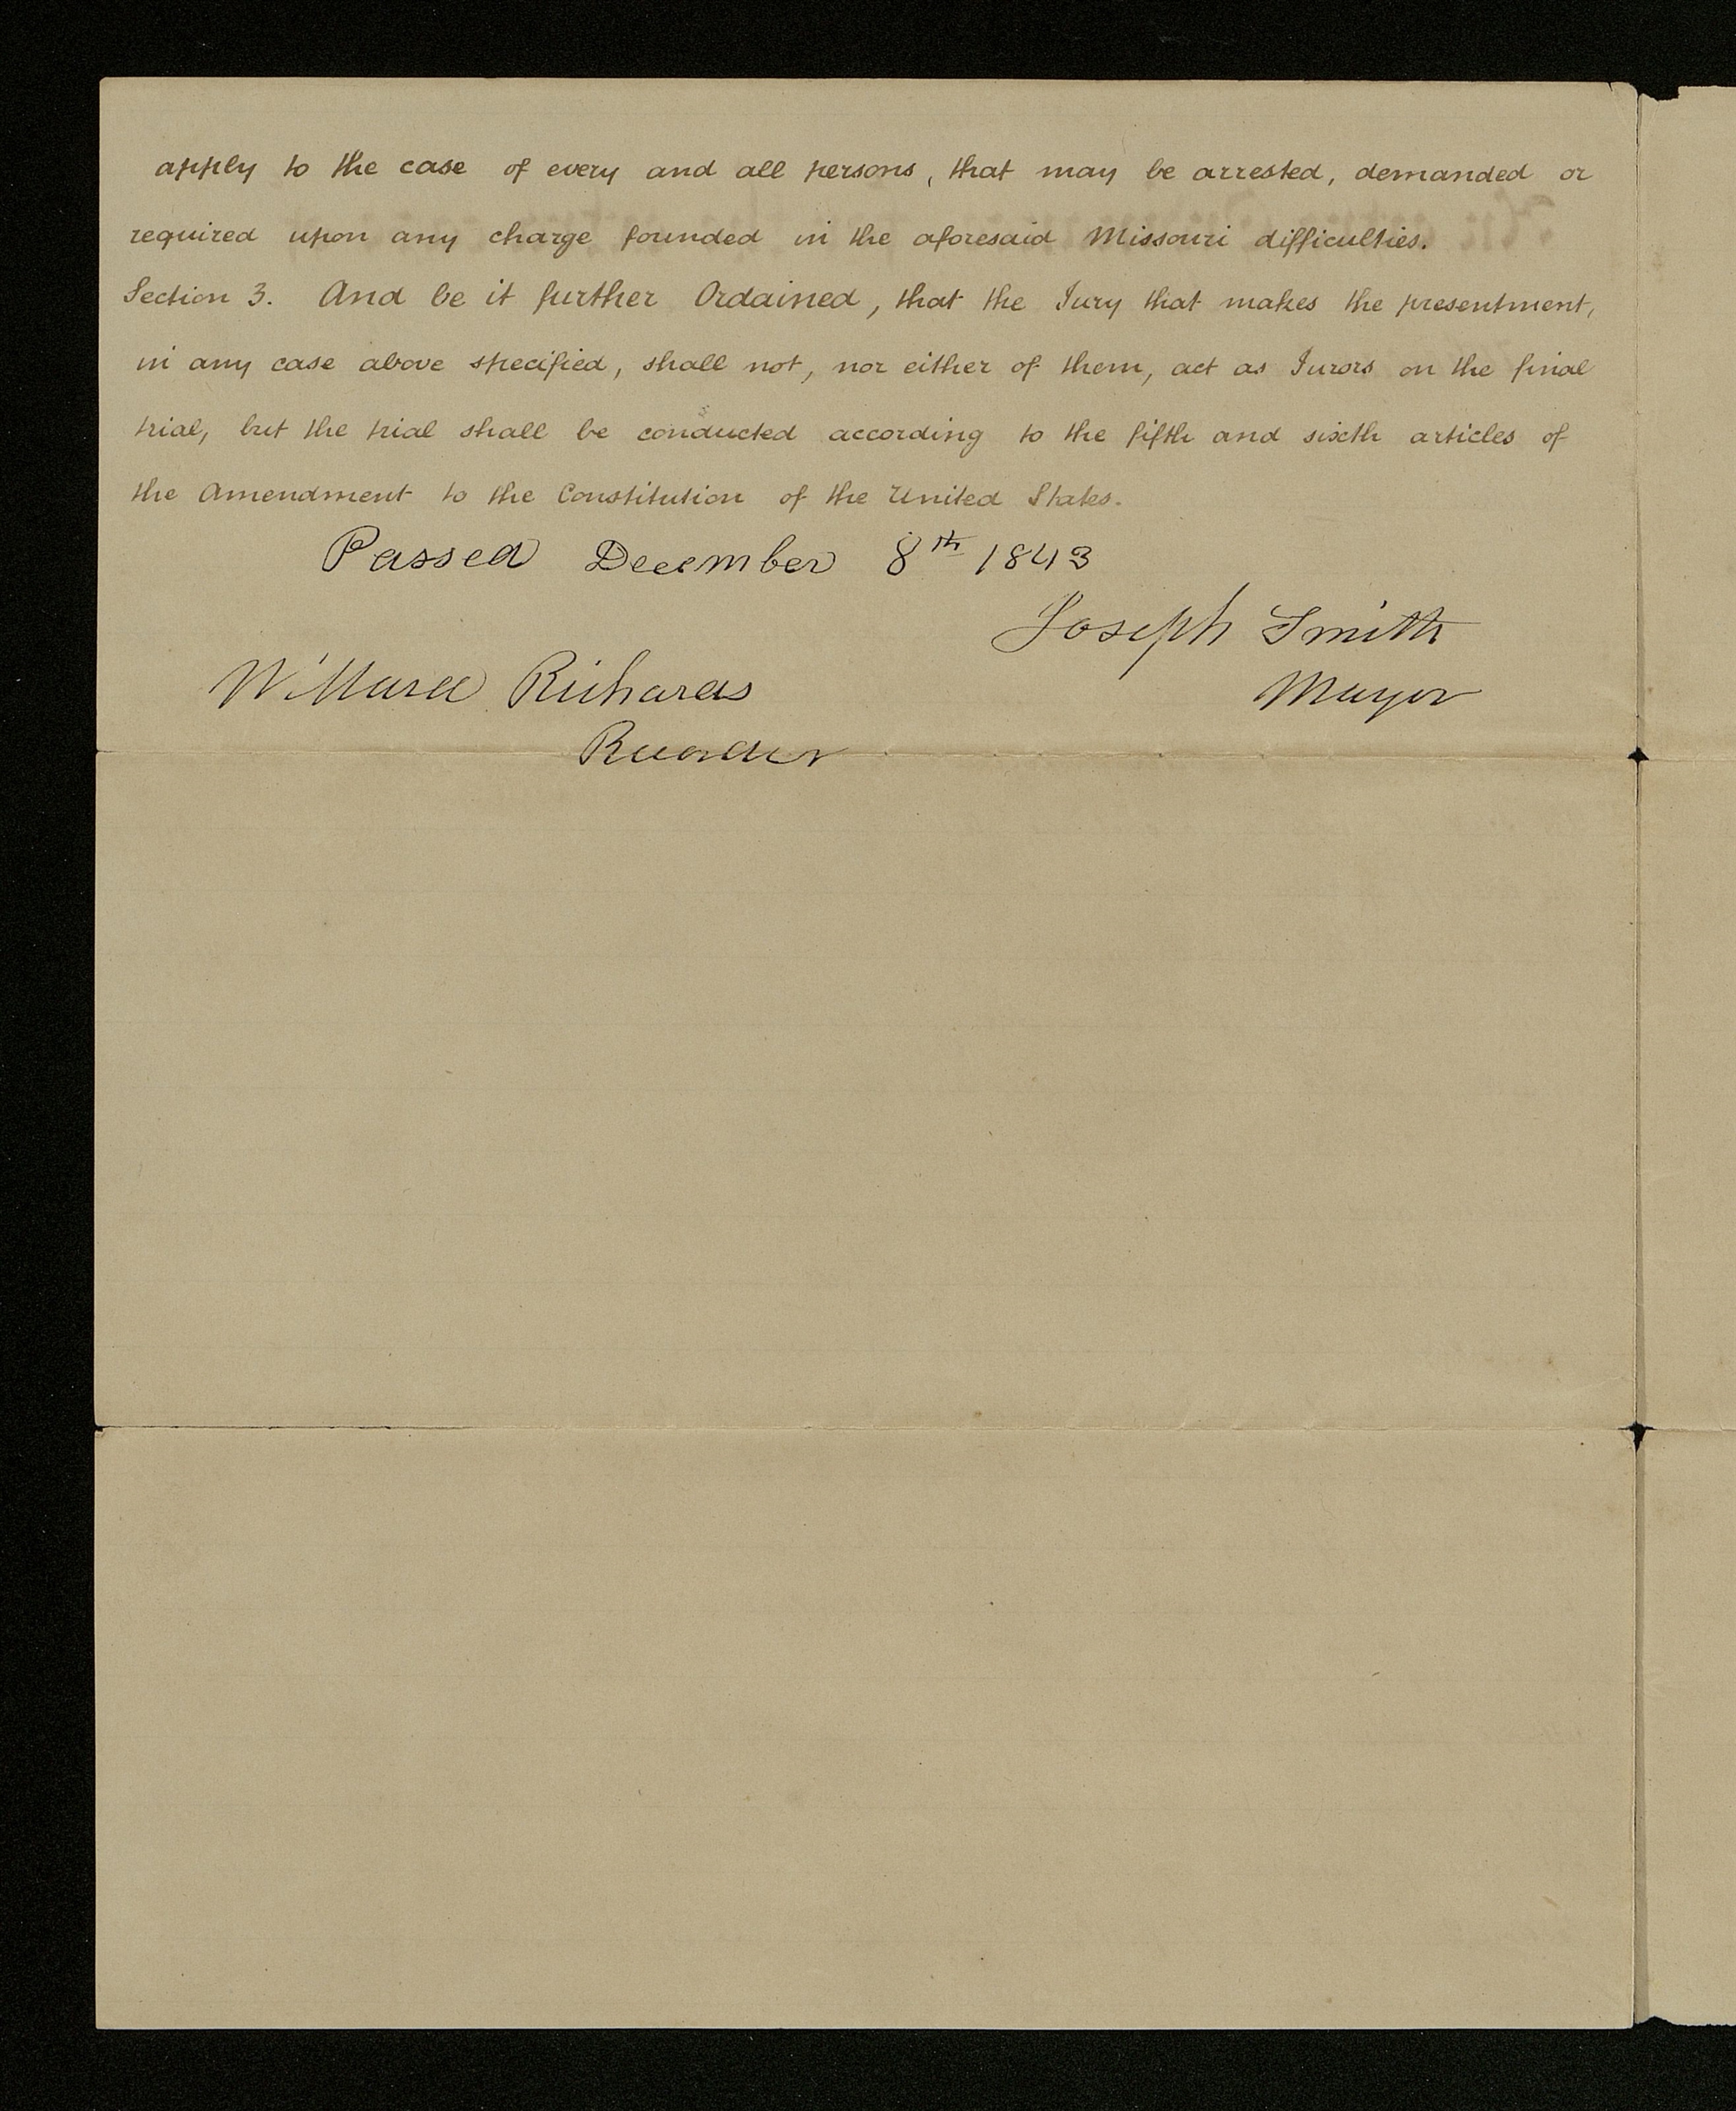 apply to the case of every and all persons, that may be arrested, demanded or
required upon any charge founded in the aforesaid Missouri difficulties.
Section 3. And be it further Ordained, that the Jury that makes the presentment,
in any case above specified, shall not, nor either of them, act as Jurors on the final
trial, but the trial shall be conducted according to the fifth and sixth articles of
the Amendment to the Constitution of the United States.
Passed December 8th 1843
Joseph Smith
Mayor
Willard Richards
Recorder